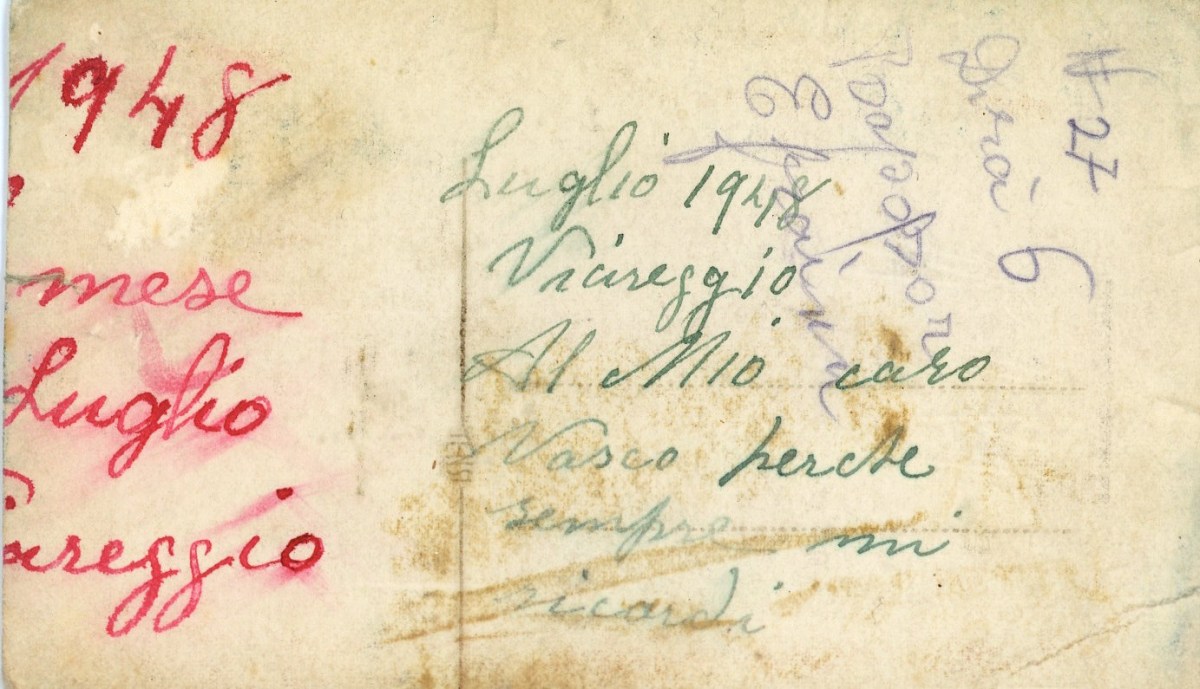 1948
mese
Luglio
areggio
Luglio 1948
Viareggio
Al Mio caro
Vasco perche
sempre mi
ricordi
# 27
6